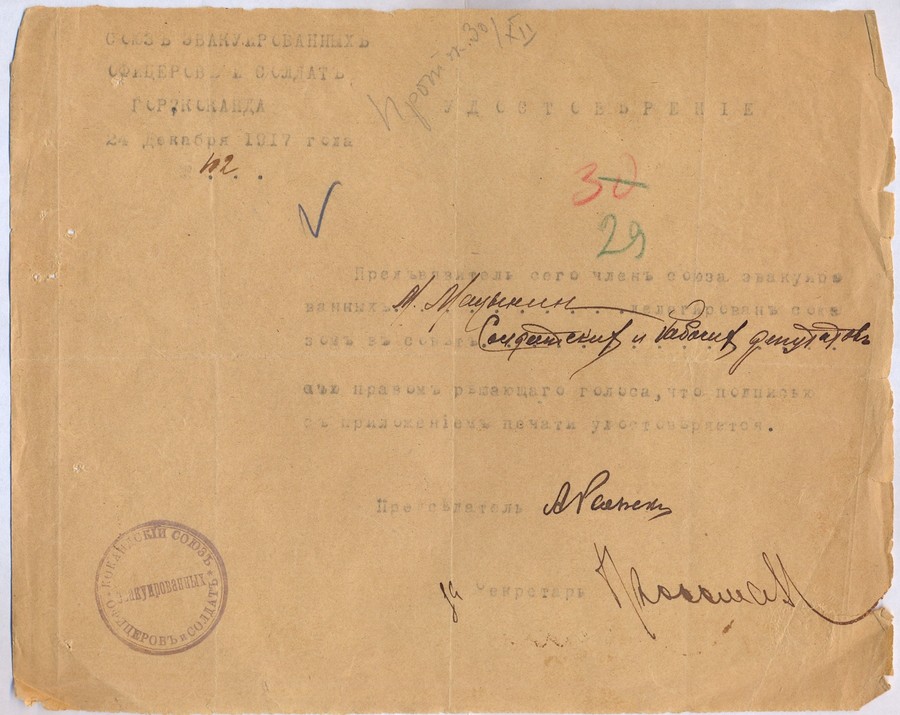 СОЮЗЪ ЭВАКУИРОВАННЫХЪ
ОФИЦЕРОВЪ И СОЛДАТЪ
ГОР. КОКАНДА
24 Декабря 1917 года
№ 2
Прот. 30/XII
УДОСТОВѢРЕНІЕ
30
29
Предъявитель сего членъ союза эвакуиро
ванныхъ М. Мацыкин делегированъ сою
зомъ въ совѣтъ Солдатских и Рабочих депутатовъ
съ правомъ рѣшающаго голоса, что подписью
съ приложеніемъ печати удостовѣряется.
Предсѣдатель
за Секретарь
КОКАНДСКІЙ СОЮЗЪ
эвакуированныхъ
ОФИЦЕРОВЪ и СОЛДАТЪ